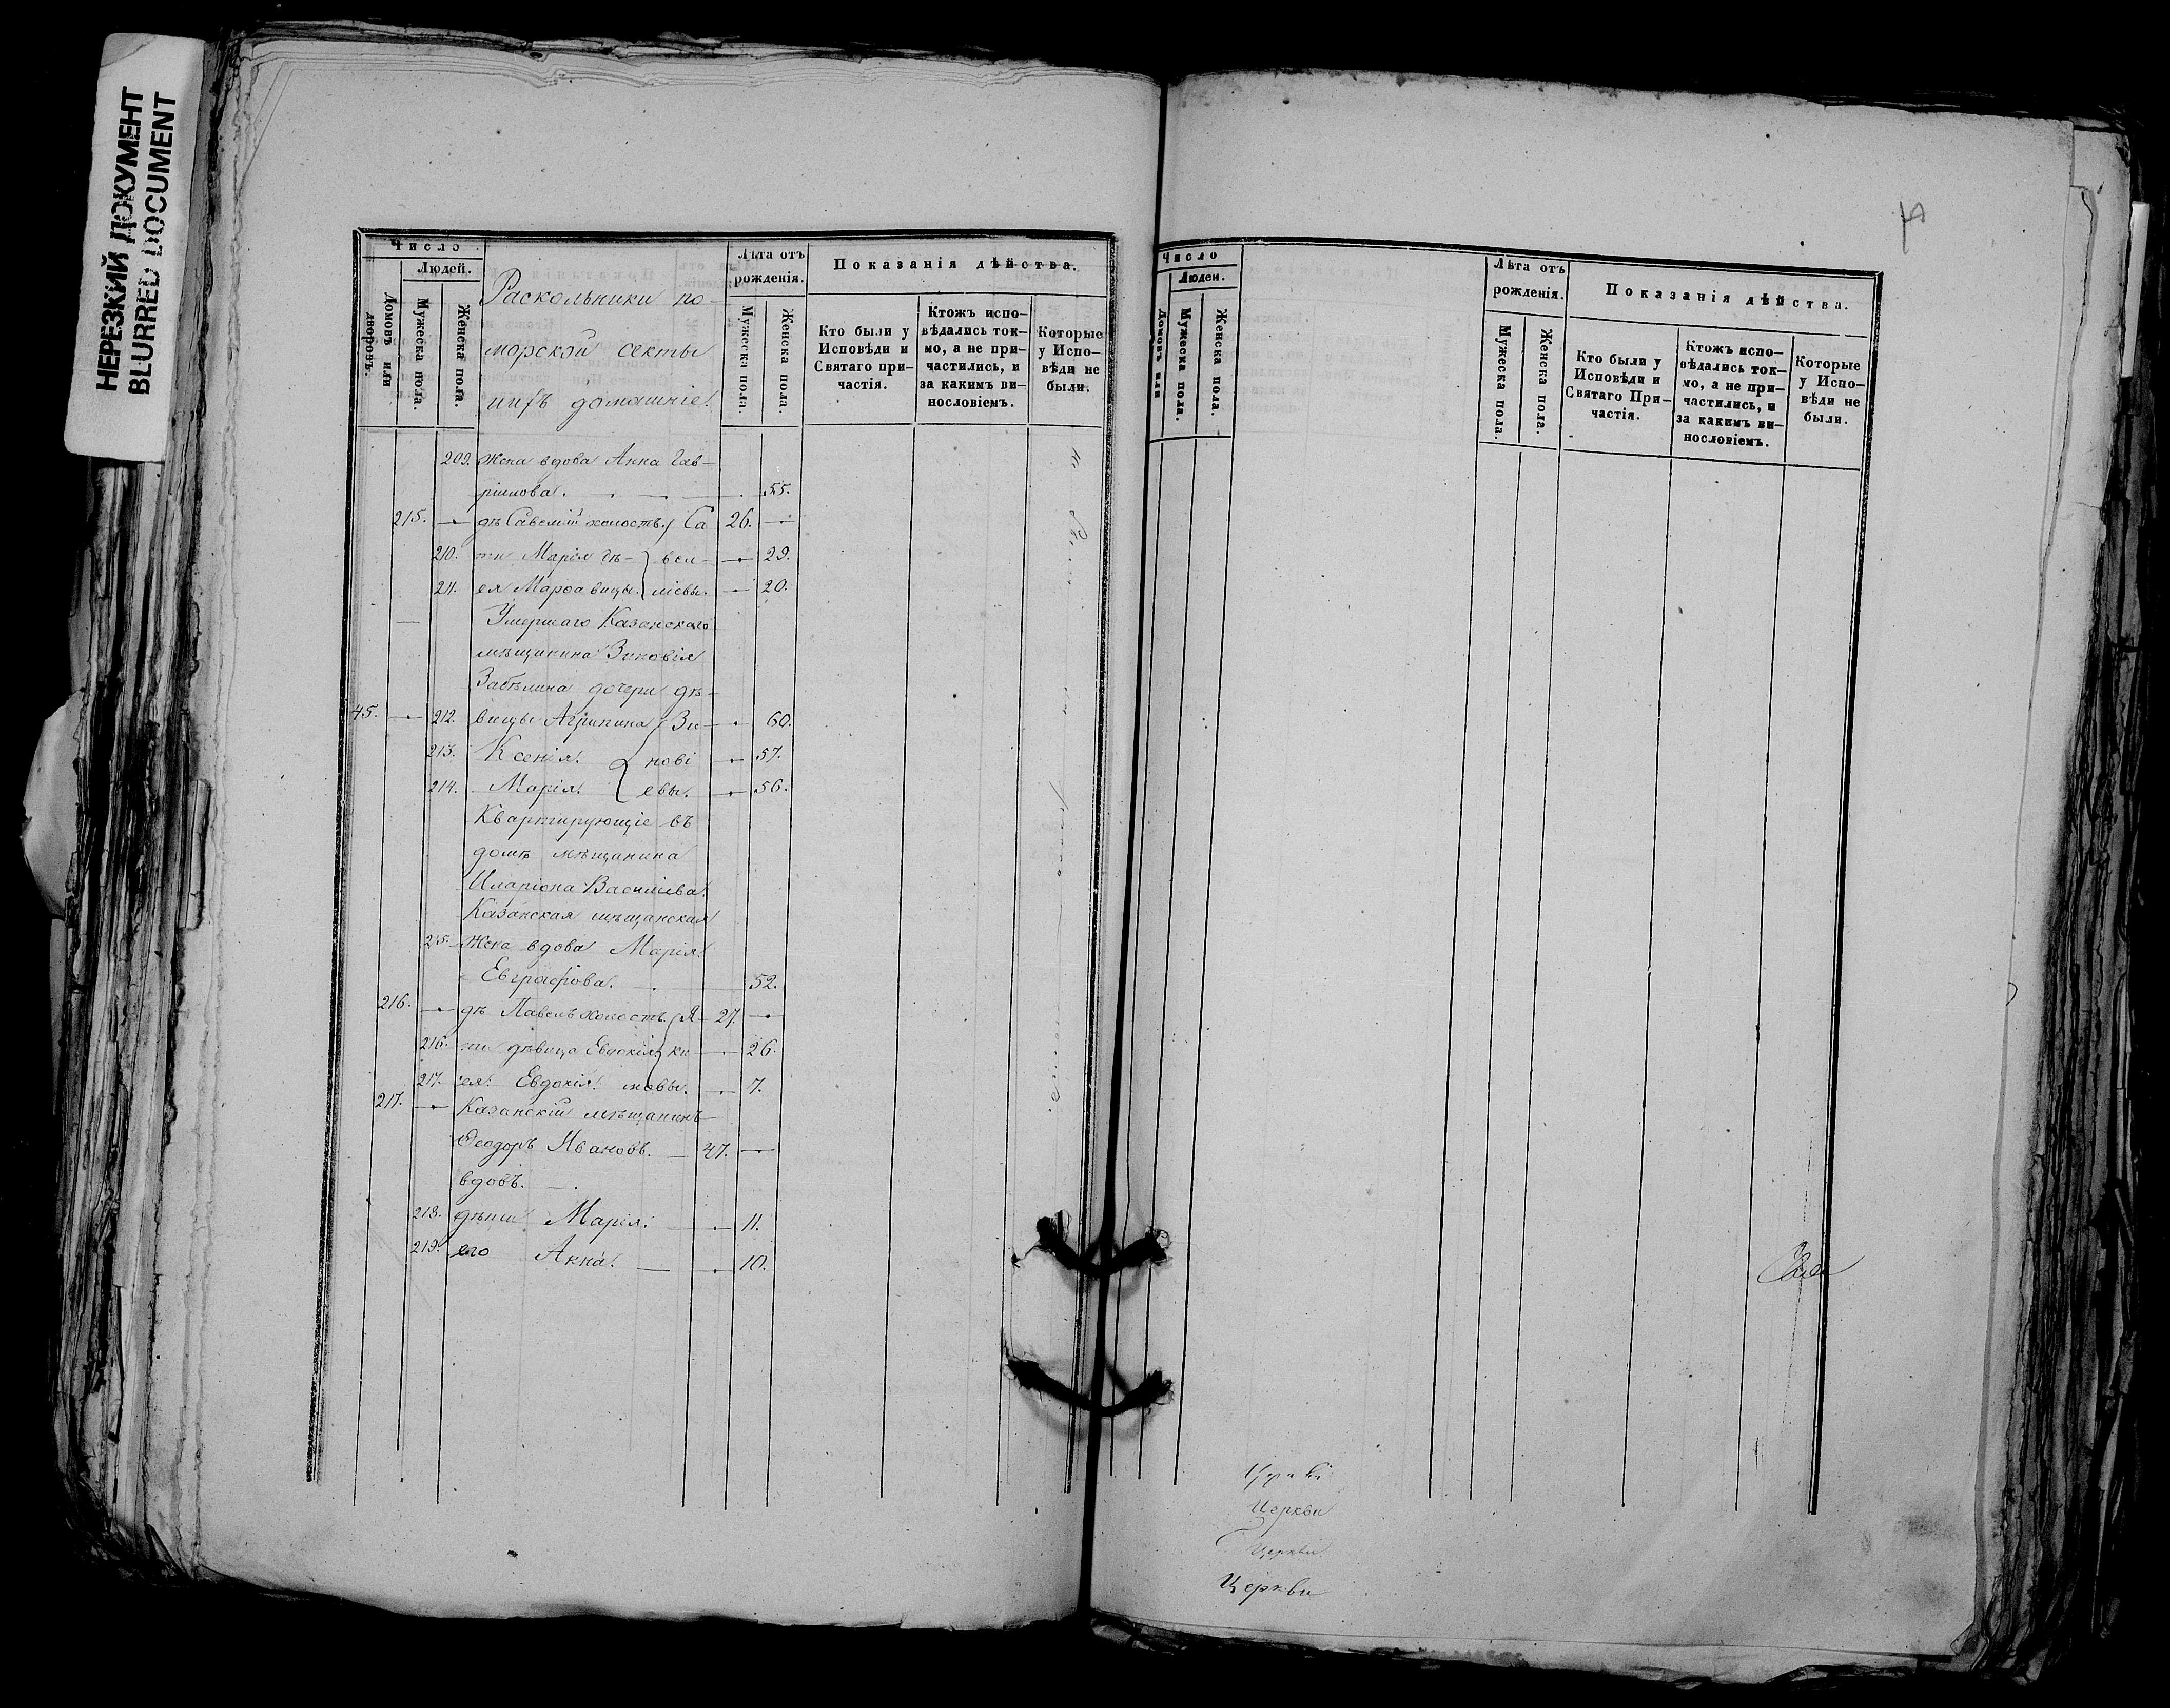 НЕРЕЗКИЙ ДОКУМЕНТ
BLURRED DOCUMENT
Число
Людей.
Домовъ или дворовъ.
Мужеска пола.
Женска пола.
Раскольники по-
морской секты
ихъ домашніе.
Лѣта отъ
рожденія.
Мужеска пола.
Женска пола.
Показанія дѣйства.
Кто были у
Исповѣди и
Святаго при-
частія.
Ктожъ испо-
вѣдались ток-
мо, а не при-
частились, и
за какимъ ви-
нословіемъ.
Которые
у Испо-
вѣди не
были.
209. Жена вдова Анна Гав-
ріилова. 55.
215. — дѣ Савелій холостъ. Са 26. —
210. ти Марія дѣ- вел- — 29.
211. ея Марѳа вицы. ліевы. — 20.
Умершаго Казанскаго
мѣщанина Зиновія
Забѣлина дочери дѣ-
45. — 212. вицы Агрипина Зи- — 60.
213. Ксенія. нові — 57.
214. Марія. евы. — 56.
Квартирующіе въ
домѣ мѣщанина
Иларіона Василіева.
Казанская мѣщанская
215. Жена вдова Марія
Евграфова. 52.
216. — дѣ Павелъ холостъ. Я- 27. —
216. ти дѣвица Евдокія ки- — 26.
217. ея. Евдокія. мовы. — 7.
217. — Казанскій мѣщанинъ
Ѳеодоръ Ивановъ. — 47. —
вдовъ.
218. дѣти Марія. — 11.
219. его Анна. — 10.
Число
Людей.
Домовъ или
Мужеска пола.
Женска пола.
Лѣта отъ
рожденія.
Мужеска пола.
Женска пола.
Показанія дѣйства.
Кто были у
Исповѣди и
Святаго При-
частія.
Ктожъ испо-
вѣдались ток-
мо, а не при-
частились, и
за какимъ ви-
нословіемъ.
Которые
у Испо-
вѣди не
были.
Церкви
Церкви
Церкви